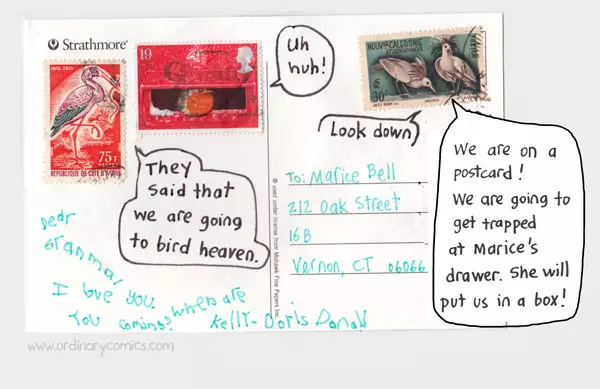 Strathmore
1965-1975
75F
REPUBLIQUE DE COTE D'IVOIRE
19
Uh
huh!
NOUVELLE CALEDONIE
ET DEPENDANCES
POSTES
30
RF
Look down
They
said that
we are going
to bird heaven.
We are on a
postcard!
We are going to
get trapped
at Marice's
drawer. She will
put us in a box!
To: Marice Bell
212 Oak Street
16B
Vernon, CT 06066
® used under license from Mohawk Fine Papers Inc.
Dear
Granma,
I love you. when are
you coming?
Kelly-Doris Donald
www.ordinarycomics.com